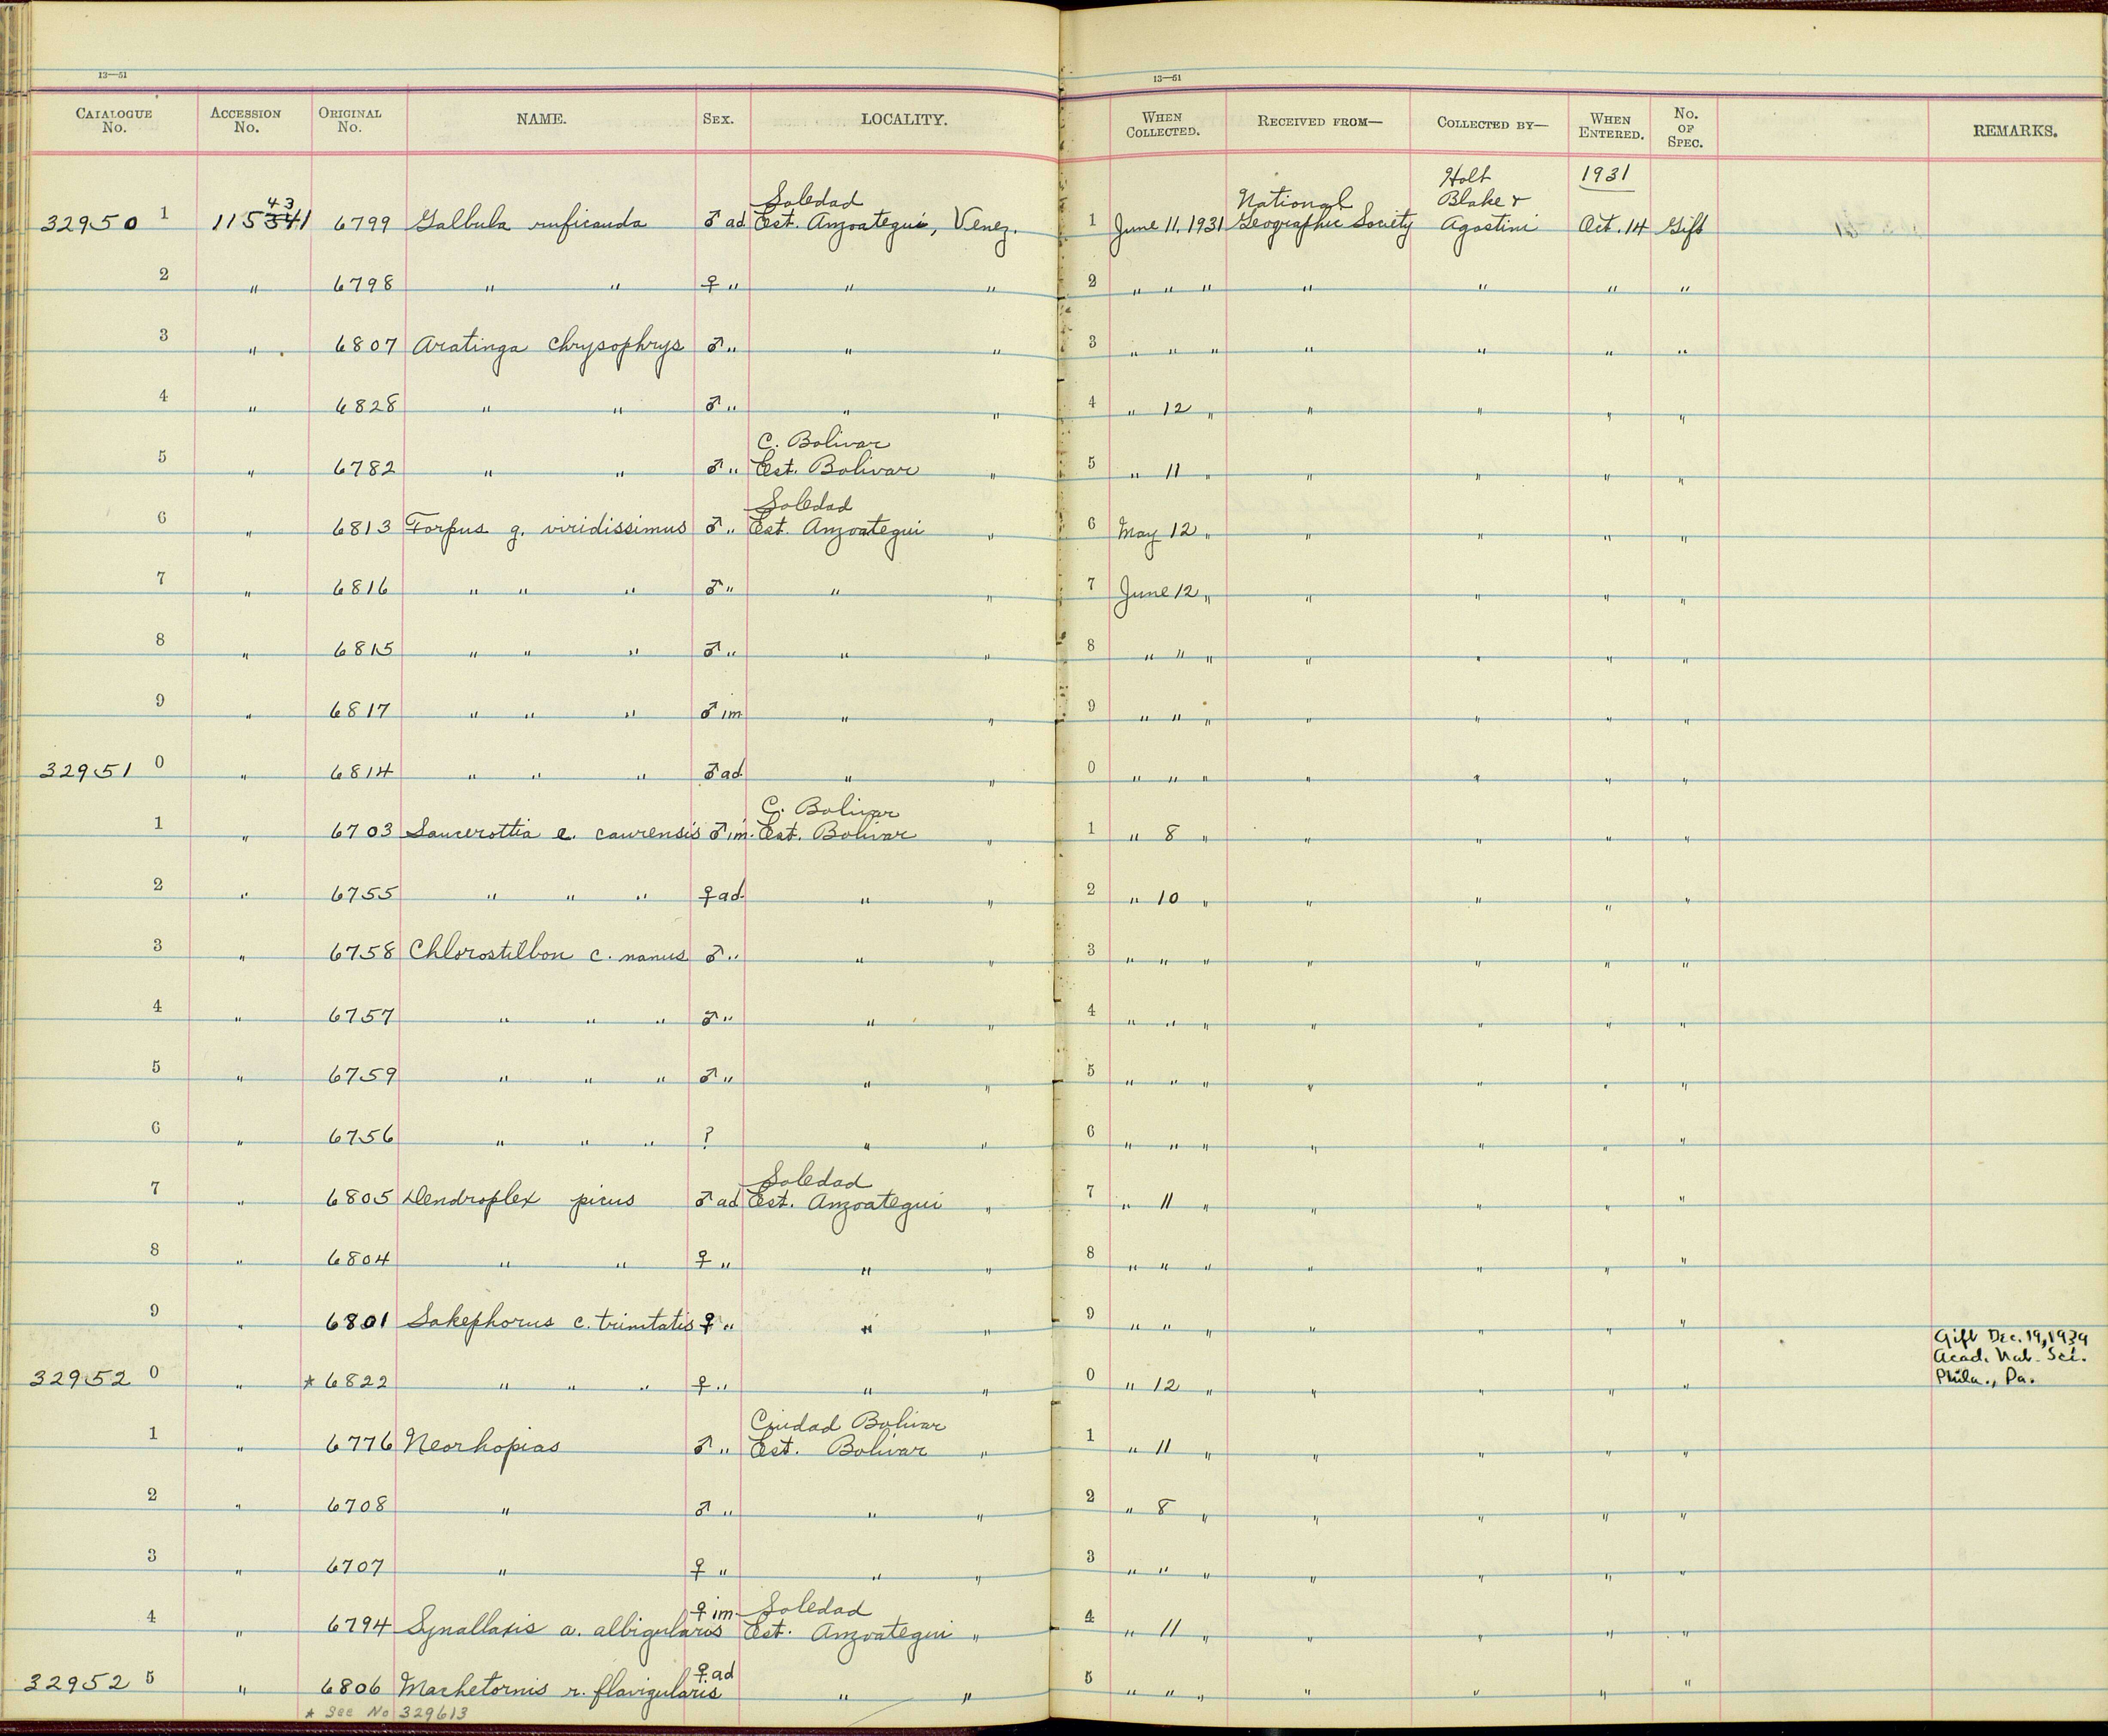 13—51
13—51
CATALOGUE No. ACCESSION No. ORIGINAL No. NAME. SEX. LOCALITY. WHEN COLLECTED. RECEIVED FROM— COLLECTED BY— WHEN ENTERED. No. OF SPEC. REMARKS.
32950 1 115341 43 6799 Galbula ruficauda ♂ ad. Soledad Est. Anzoategui, Venez. 1 June 11, 1931 National Geographic Society Holt Blake & Agostini 1931 Oct. 14 Gift
2 " 6798 " " ♀ " " " 2 " " " " " " "
3 " 6807 Aratinga chrysophrys ♂ " " " 3 " " " " " " "
4 " 6828 " " ♂ " " " 4 " 12 " " " " "
5 " 6782 " " ♂ " C. Bolivar Est. Bolivar " 5 " 11 " " " " "
6 " 6813 Forpus g. viridissimus ♂ " Soledad Est. Anzoategui " 6 May 12 " " " " "
7 " 6816 " " " ♂ " " " 7 June 12 " " " " "
8 " 6815 " " " ♂ " " " 8 " " " " " " "
9 " 6817 " " " ♂ im. " " 9 " " " " " " "
32951 0 " 6814 " " " ♂ ad. " " 0 " " " " " " "
1 " 6703 Saucerottia e. caurensis ♂ im. C. Bolivar Est. Bolivar " 1 " 8 " " " " "
2 " 6755 " " " ♀ ad. " " 2 " 10 " " " " "
3 " 6758 Chlorostilbon c. nanus ♂ " " " 3 " " " " " " "
4 " 6757 " " " ♂ " " " 4 " " " " " " "
5 " 6759 " " " ♂ " " " 5 " " " " " " "
6 " 6756 " " " ? " " 6 " " " " " " "
7 " 6805 Dendroplex picus ♂ ad Soledad Est. Anzoategui " 7 " 11 " " " " "
8 " 6804 " " ♀ " " " 8 " " " " " " "
9 " 6801 Sakephorus c. trinitatis ♀ " " " 9 " " " " " " "
32952 0 " * 6822 " " " ♀ " " " 0 " 12 " " " " " Gift Dec. 19, 1939 Acad. Nat. Sci. Phila., Pa.
1 " 6776 Neorhopias ♂ " Ciudad Bolivar Est. Bolivar " 1 " 11 " " " " "
2 " 6708 " ♂ " " " 2 " 8 " " " " "
3 " 6707 " ♀ " " " 3 " " " " " " "
4 " 6794 Synallaxis a. albigularis ♀ im. Soledad Est. Anzoategui " 4 " 11 " " " " "
32952 5 " 6806 Machetornis r. flavigularis ♀ ad " " 5 " " " " " " "
* See No 329613